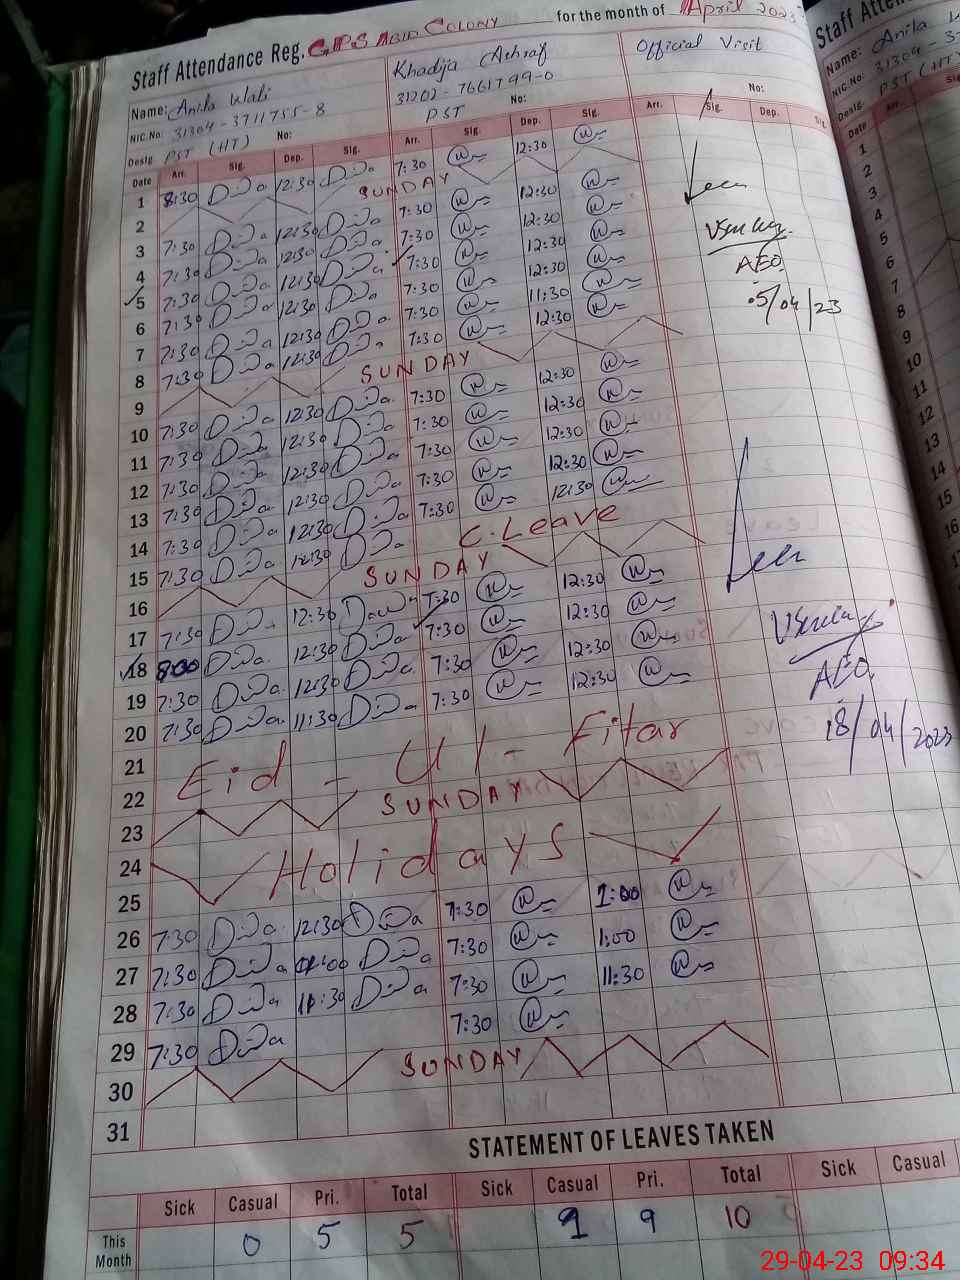 Staff Attendance Reg. GPS Abid Colony for the month of April 2023
Name: Anila Wali Khadija Ashraf Official Visit
NIC.No: 31304-3711755-8 31202-7661799-0
Desig PST (HT) No: PST No: No:
Date Arr. Sig. Dep. Sig. Arr. Sig. Dep. Sig. Arr. Sig. Dep. Sig.
1 8:30 12:30 7:30 12:30
2 SUNDAY
3 7:30 12:30 7:30 12:30
4 7:30 12:30 7:30 12:30
5 7:30 12:30 7:30 12:30
6 7:30 12:30 7:30 12:30
7 7:30 12:30 7:30 11:30
8 7:30 12:30 7:30 12:30
9 SUNDAY
10 7:30 12:30 7:30 12:30
11 7:30 12:30 7:30 12:30
12 7:30 12:30 7:30 12:30
13 7:30 12:30 7:30 12:30
14 7:30 12:30 7:30 12:30
15 7:30 12:30 C.Leave
16 SUNDAY
17 7:30 12:30 7:30 12:30
18 8:00 12:30 7:30 12:30
19 7:30 12:30 7:30 12:30
20 7:30 11:30 7:30 12:30
21 Eid - Ul - Fitar
22
23 SUNDAY
24 Holidays
25
26 7:30 12:30 7:30 1:00
27 7:30 7:30 1:00
28 7:30 11:30 7:30 11:30
29 7:30 7:30
30 SUNDAY
31
Seen
AEO
5/04/23
Seen
AEO.
18/04/2023
STATEMENT OF LEAVES TAKEN
Sick Casual Pri. Total Sick Casual Pri. Total Sick Casual
This Month 0 5 5 1 9 10
Staff Atten
Name: Anila
NIC.No: 31304-3
Desig. PST (HT)
Date Arr. Sig
1
2
3
4
5
6
7
8
9
10
11
12
13
14
15
29-04-23 09:34